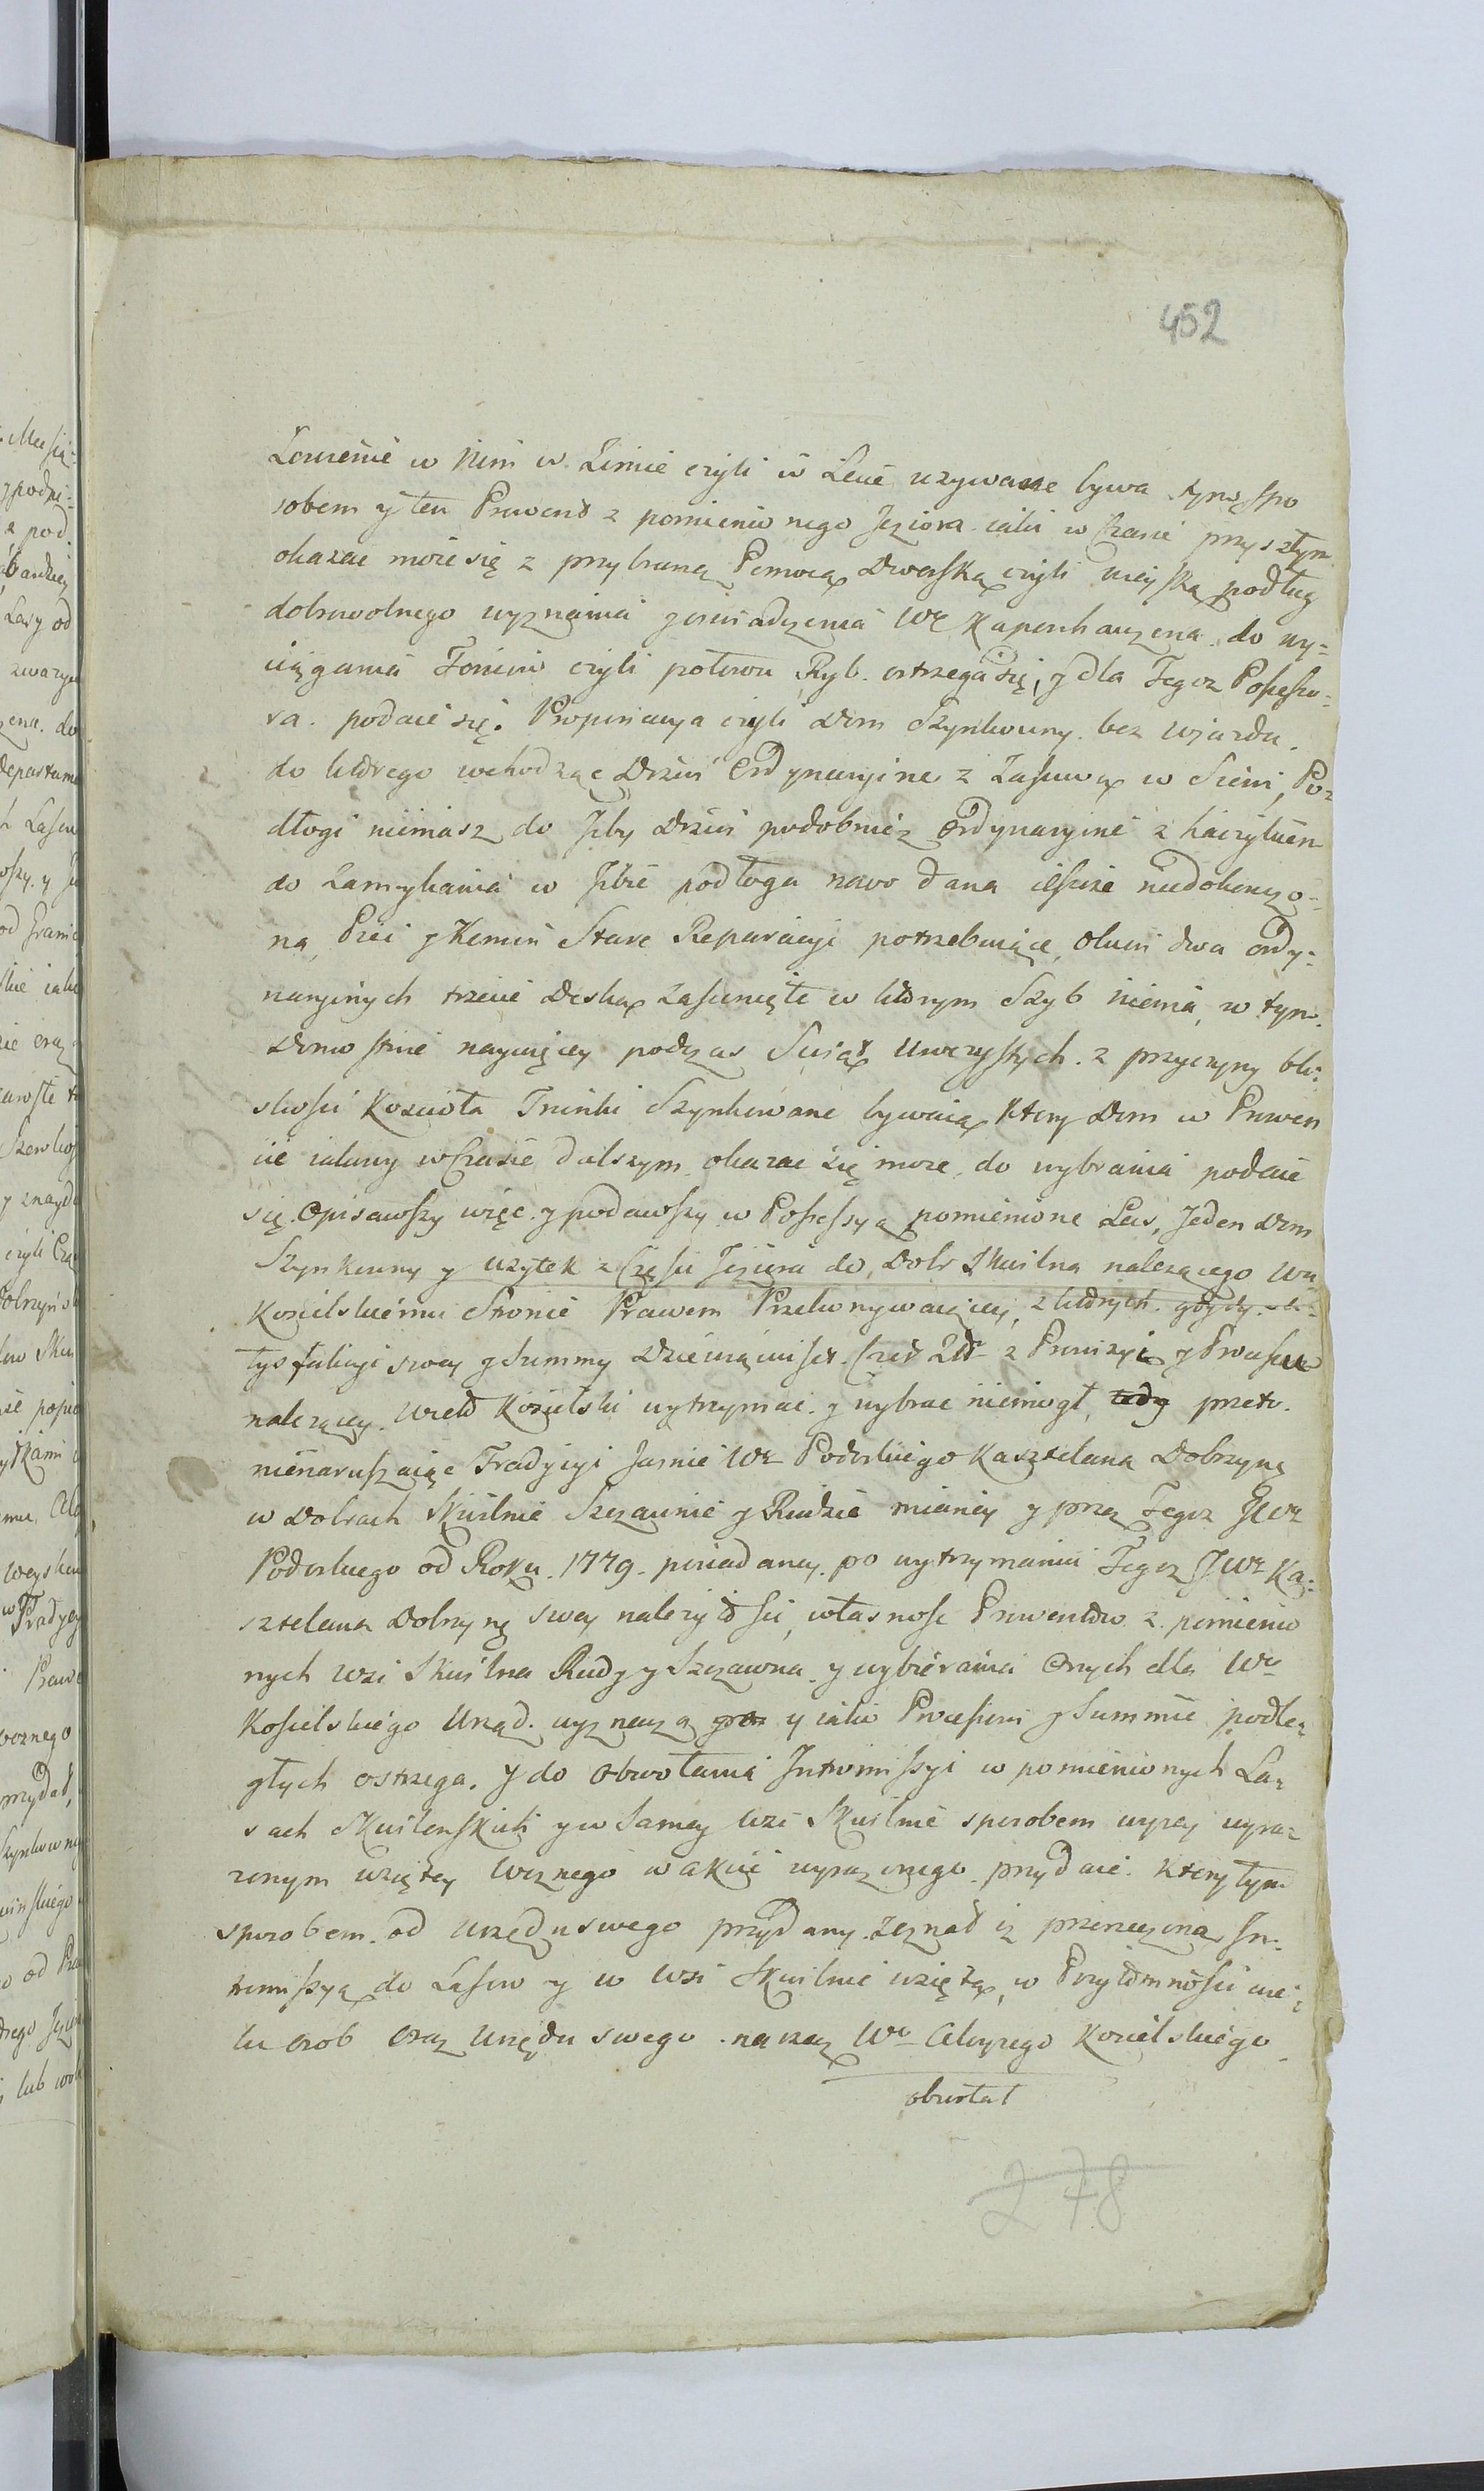 452
Łowienie w Nim w Zimie czyli w Lecie uzywane bywa tym spo
sobem y ten Prowent z pomienionego Jeziora iaki w Czasie przysztym
okazac moze się z przybraną Pomocą Dworską czyli wieyską podług
dobrowolnego wyznania y oswiadczenia Wo Kapenhauzena do wy=
ciągania Toniow czyli połowu Ryb ostrzega się, y dla Tegoz Possesso=
ra podaie się. Propinacya czyli Dom Szynkowny bez wjazdu
do ktorego wchodząc Drzwi Ordynaryine z Zasuwą w Sieni, Po=
dłogi niemasz do Jzby Drzwi podobniez Ordynaryine z haczykiem
do Zamykania w Jzbie podłoga nowo dana ieszcze niedokonczo=
na, Piec y Komin Stare Reparacyi potrzebuiące, okien dwa ordy=
naryinych trzecie Deską zasunięte w ktorym Szyb niema, w tym
Domostwie naywięcey podczas Swiąt Uroczystych z przyczyny bli=
skosci Koscioła Trunki Szynkowane bywaią Ktory Dom w Prowen
cie iakowy w Czasie dalszym okazac się moze do wybrania podaie
się. Opisawszy więc y podawszy w Possessyą pomienione Lasy, Jeden Dom
Szynkowny y uzytek z Części Jeziora do Dobr Skuilna nalezącego Wu
Kosielskiemu Stronie Prawem Przekonywaiącey, z ktorych gdyby sa=
tysfakcyi swey y Summy Dziewięciuset Czer Złł z Prowizyi y Processu
nalezącey Wielo Kosielski wytrzymac y wybrac niemogł, tedy przeto
nienaruszaiąc Tradycyi Jasnie Wo Podoskiego Kasztelana Dobrzynę
w Dobrach Skuilnie Szczawnie y Rudzie mianey y przez Tegoz JWo
Podoskiego od Roku 1779 posiadaney po wytrzymaniu Tegoz JWo Ka=
sztelana Dobrzynę swey nalezytosci, własnosc Prowentow z pomienio
nych Wsi Skuilna Rudy y Szczawna y wybierania Onych dla Wo
Kosielskiego Urząd wyznacza y iako Processowi y Summie podle=
głych ostrzega. Y do Obwołania Jntromissyi w pomienionych La=
sach Skuilenskich y w Samey Wsi Skuilnie sposobem wyzey wyra=
zonym wziętey Woznego w akcie wyrazonego przydaie. Ktory tym
sposobem od Urzędu swego przydany zeznał iz przerzeczoną Jn=
tromissyą do Lasow y w Wsi Skuilnie wziętą, w Przytomnosci wie=
lu osob oraz Urzędu swego na rzecz Wo Aloyzego Kosielskiego
obwołał
278